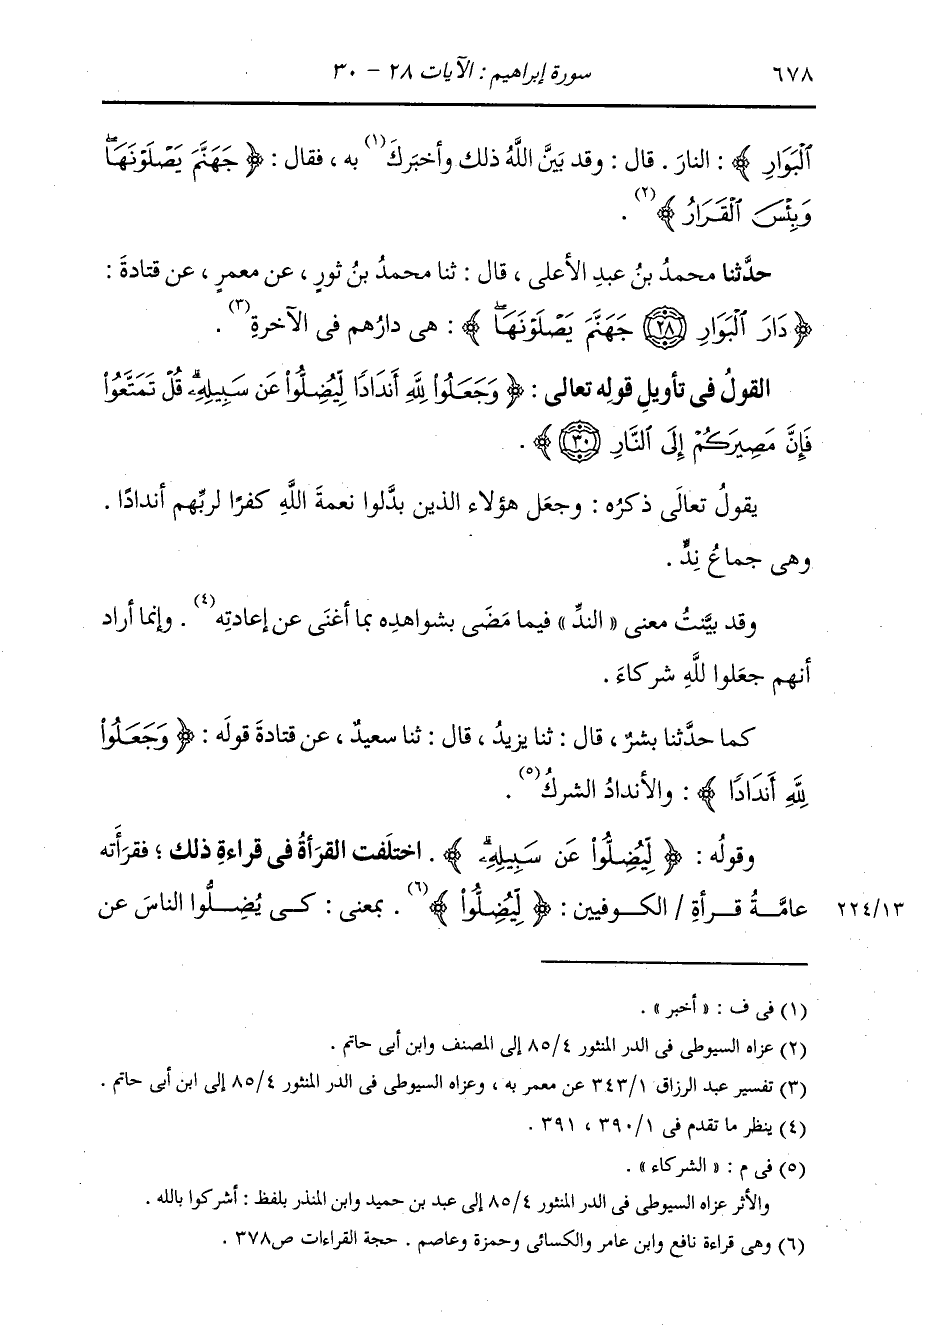 ٦٧٨ سورة إبراهيم : الآيات ٢٨ - ٣٠
ٱلْبَوَارِ ﴾ : النارَ . قال : وقد بَيَّن اللَّهُ ذلك وأخبَركَ(١) به ، فقال : ﴿ جَهَنَّمَ يَصْلَوْنَهَاۖ
وَبِئْسَ ٱلْقَرَارُ ﴾(٢) .
حدَّثنا محمدُ بنُ عبدِ الأعلى ، قال : ثنا محمدُ بنُ ثورٍ ، عن معمرٍ ، عن قتادةَ :
﴿ دَارَ ٱلْبَوَارِ ﴿٢٨﴾ جَهَنَّمَ يَصْلَوْنَهَاۖ ﴾ : هى دارُهم فى الآخرةِ(٣) .
القولُ فى تأويلِ قولِه تعالى : ﴿ وَجَعَلُوا۟ لِلَّهِ أَندَادًا لِّيُضِلُّوا۟ عَن سَبِيلِهِۦۗ قُلْ تَمَتَّعُوا۟
فَإِنَّ مَصِيرَكُمْ إِلَى ٱلنَّارِ ﴿٣٠﴾ ﴾ .
يقولُ تعالَى ذكرُه : وجعَل هؤلاء الذين بدَّلوا نعمةَ اللَّهِ كفرًا لربِّهم أندادًا .
وهى جماعُ نِدٍّ .
وقد بيَّنتُ معنى « الندِّ » فيما مَضَى بشواهدِه بما أغنَى عن إعادتِه(٤) . وإنما أراد
أنهم جعَلوا للَّهِ شركاءَ .
كما حدَّثنا بشرٌ ، قال : ثنا يزيدُ ، قال : ثنا سعيدٌ ، عن قتادةَ قولَه : ﴿ وَجَعَلُوا۟
لِلَّهِ أَندَادًا ﴾ : والأندادُ الشركُ(٥) .
وقولُه : ﴿ لِّيُضِلُّوا۟ عَن سَبِيلِهِۦۗ ﴾ . اختلَفت القرَأةُ فى قراءةِ ذلك ؛ فقرَأَته
عامَّةُ قرأةِ / الكوفيين : ﴿ لِّيُضِلُّوا۟ ﴾(٦) . بمعنى : كى يُضِلُّوا الناسَ عن ٢٢٤/١٣
(١) فى ف : « أخبر » .
(٢) عزاه السيوطى فى الدر المنثور ٨٥/٤ إلى المصنف وابن أبى حاتم .
(٣) تفسير عبد الرزاق ٣٤٣/١ عن معمر به ، وعزاه السيوطى فى الدر المنثور ٨٥/٤ إلى ابن أبى حاتم .
(٤) ينظر ما تقدم فى ٣٩٠/١ ، ٣٩١ .
(٥) فى م : « الشركاء » .
والأثر عزاه السيوطى فى الدر المنثور ٨٥/٤ إلى عبد بن حميد وابن المنذر بلفظ : أشركوا بالله .
(٦) وهى قراءة نافع وابن عامر والكسائى وحمزة وعاصم . حجة القراءات ص٣٧٨ .